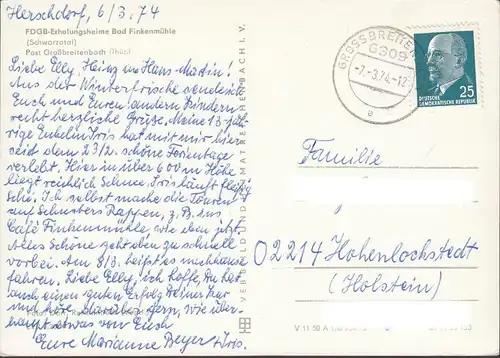 Herschdorf, 6/3.74
FDGB-Erholungsheime Bad Finkenmühle
(Schwarzatal)
Post Großbreitenbach (Thür.)
Liebe Elly, Heinz u. Hans-Martin!
Aus der Winterfrische sende ich
Euch und Euren andern Kindern
recht herzliche Grüße. Meine 13-jäh-
rige Enkelin Iris hat mit mir hier
seit dem 23/2. schöne Ferientage
verlebt. Hier in über 600 m Höhe
liegt reichlich Schnee. Iris läuft fleißig
Schi. Ich selbst mache die Touren
auf Schusters Rappen, z. B. ins
Café Finkenmühle, wie eben jetzt.
Alles Schöne geht aber zu schnell
vorbei. Am 8/3. heißt es nachhause
fahren. Liebe Elly, ich hoffe, Du hast
auch einen guten Erfolg Deiner Kur
und
haupt etwas von Euch
Eure Marianne Beyer u. Iris.
VEB BILD UND HEIMAT REICHENBACH I. V.
GROSSBREITENBACH
6309
-7.-3.74.-12
e
25
DEUTSCHE
DEMOKRATISCHE REPUBLIK
Familie
02214 Hohenlockstedt
(Holstein)
V 11 50